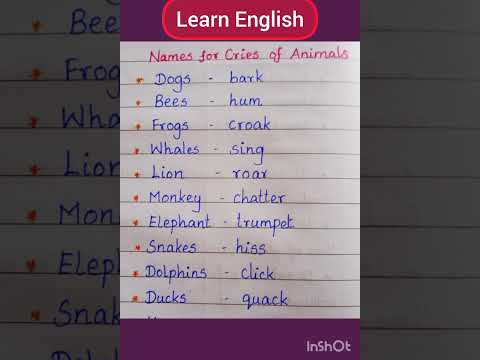 Learn English
Names for Cries of Animals
Dogs - bark
Bees - hum
Frogs - croak
Whales - sing
Lion - roar
Monkey - chatter
Elephant - trumpet
Snakes - hiss
Dolphins - click
Ducks - quack
InShOt